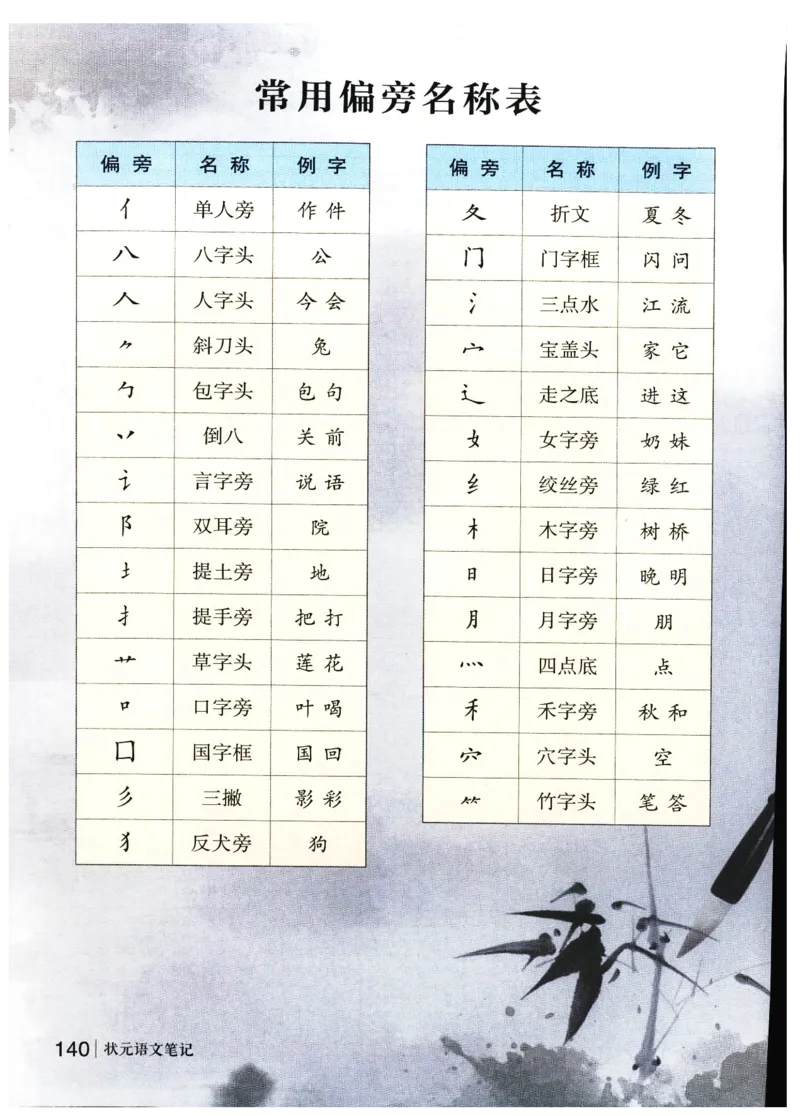 常用偏旁名称表
偏旁 名称 例字
亻 单人旁 作 件
八 八字头 公
人 人字头 今 会
⺈ 斜刀头 兔
勹 包字头 包 句
丷 倒八 关 前
讠 言字旁 说 语
阝 双耳旁 院
土 提土旁 地
扌 提手旁 把 打
艹 草字头 莲 花
口 口字旁 叶 喝
囗 国字框 国 回
彡 三撇 影 彩
犭 反犬旁 狗
偏旁 名称 例字
夂 折文 夏 冬
门 门字框 闪 问
氵 三点水 江 流
宀 宝盖头 家 它
辶 走之底 进 这
女 女字旁 奶 妹
纟 绞丝旁 绿 红
木 木字旁 树 桥
日 日字旁 晚 明
月 月字旁 朋
灬 四点底 点
禾 禾字旁 秋 和
穴 穴字头 空
⺮ 竹字头 笔 答
140 | 状元语文笔记